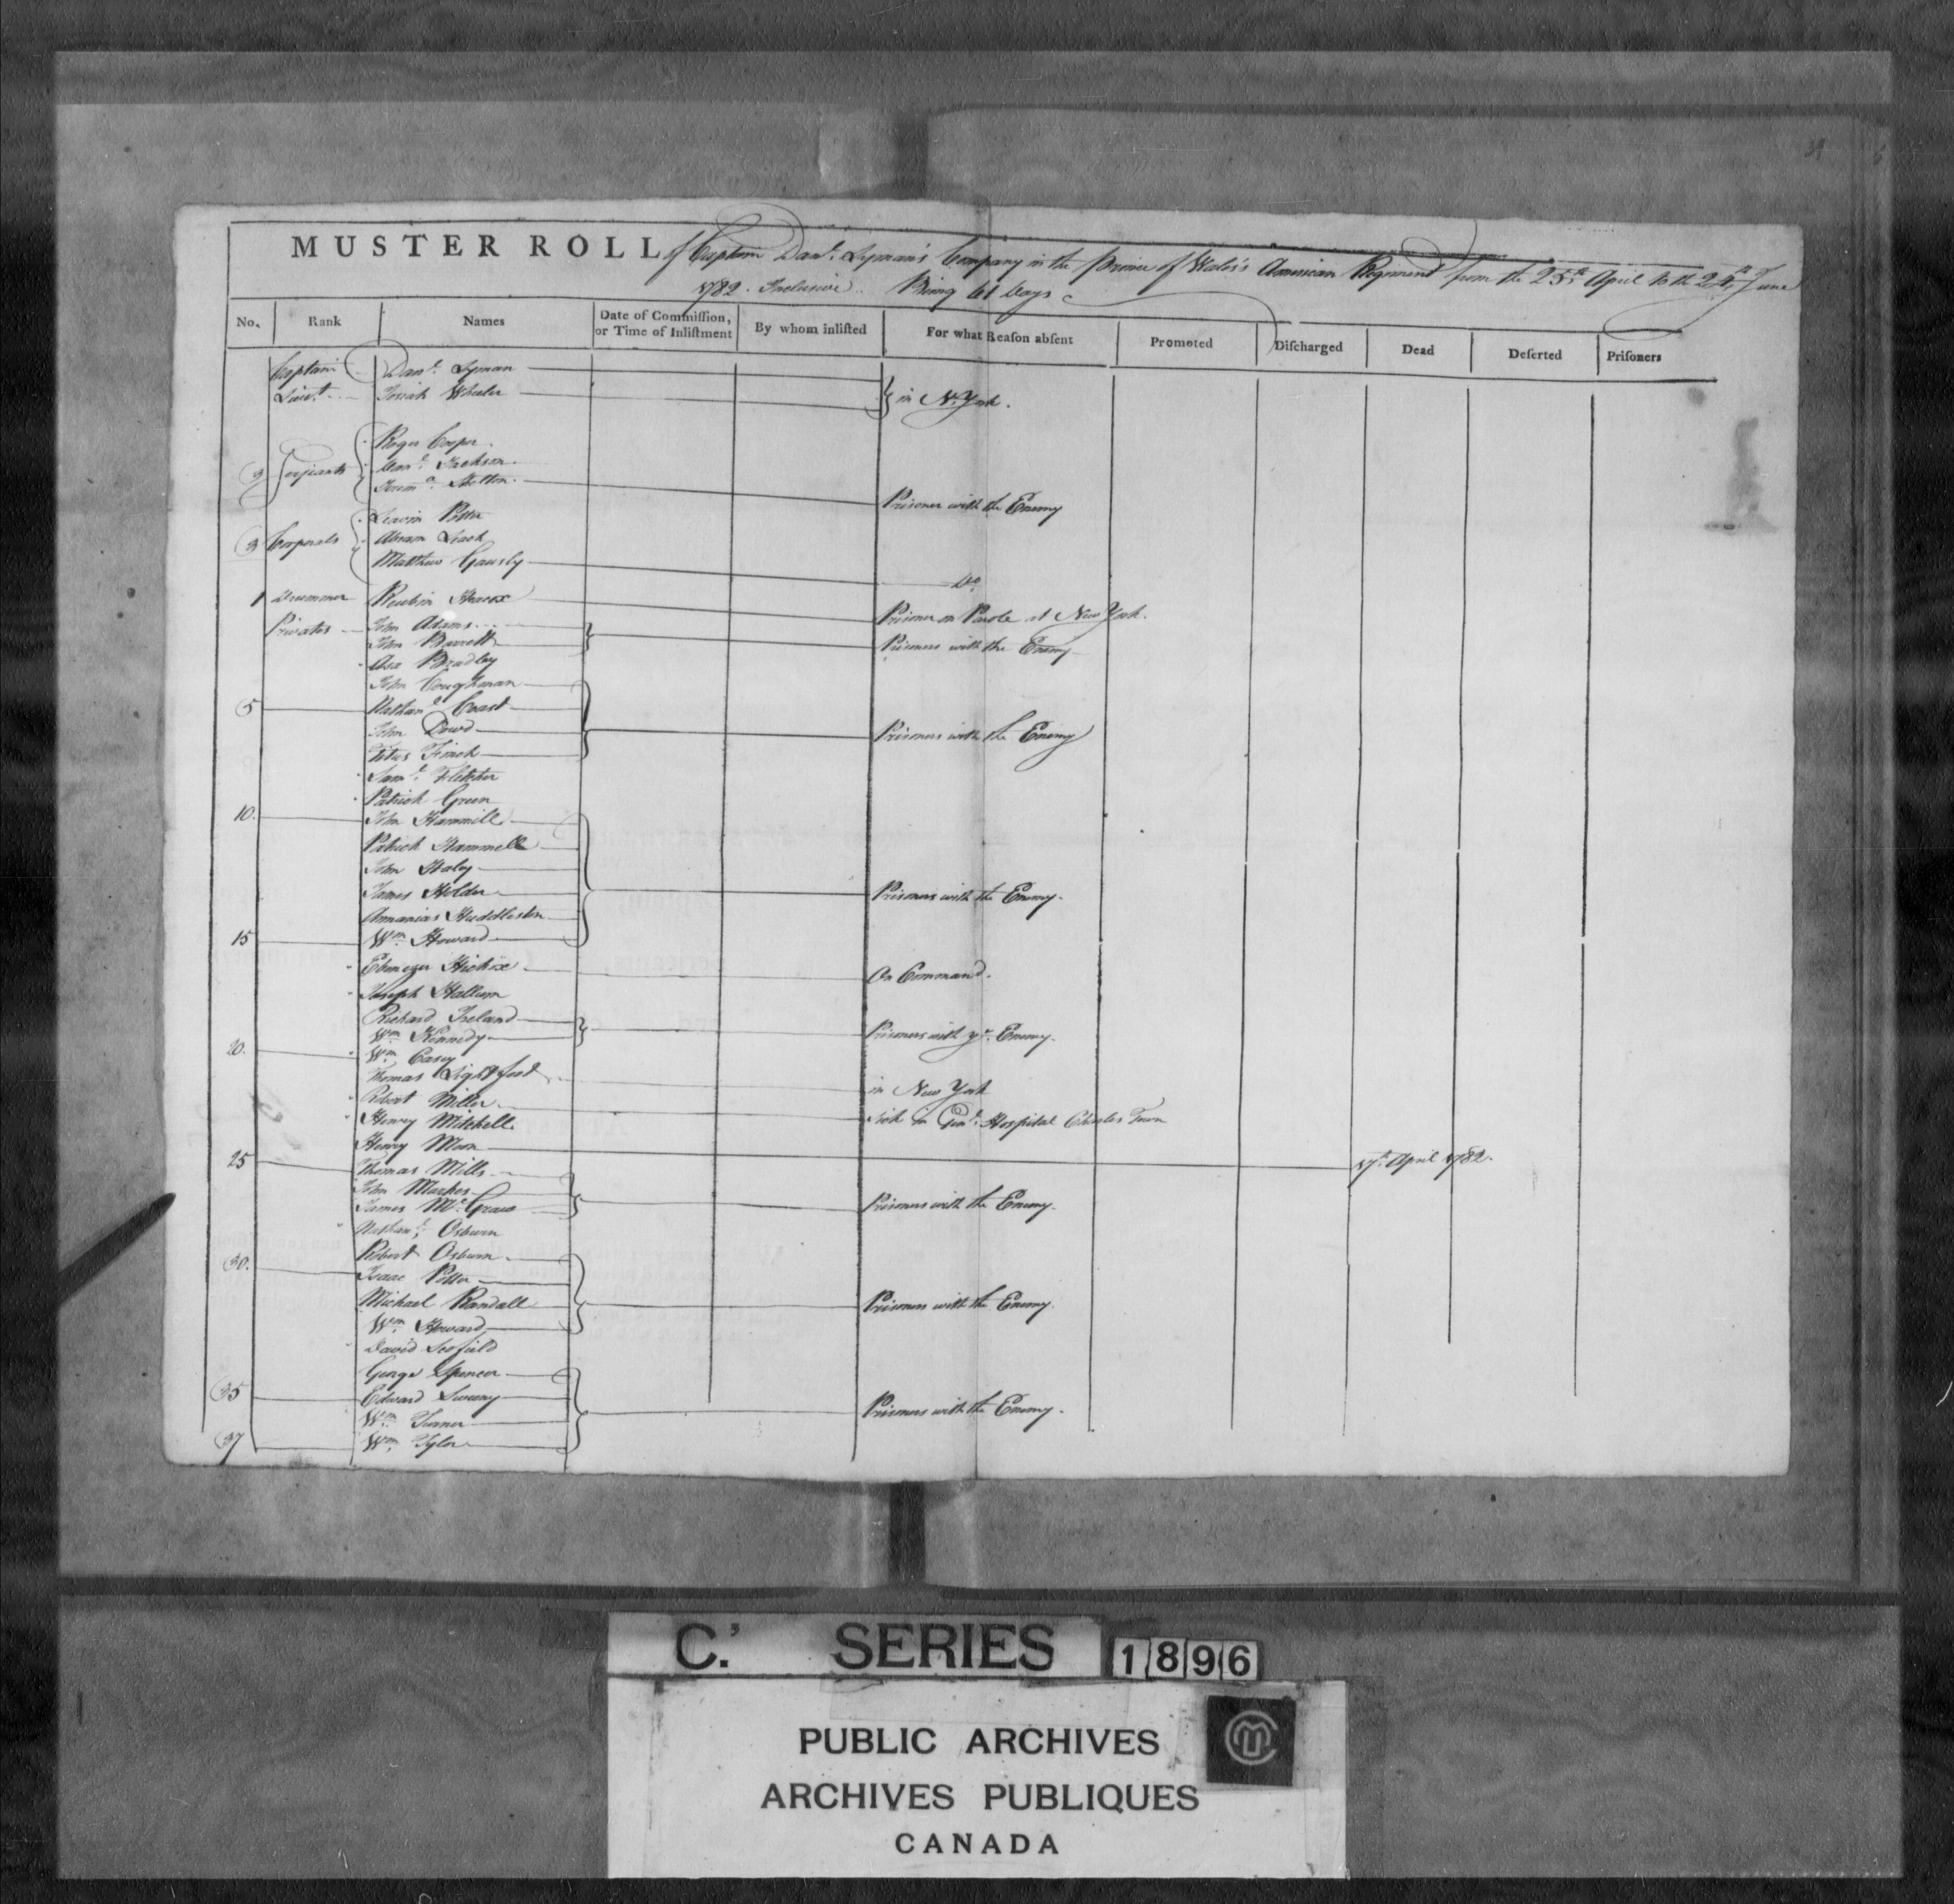 MUSTER ROLL of Captain Danl. Lyman's Company in the Prince of Wales's American Regiment from the 25th April to the 24th June
1782. Inclusive. Being 61 Days
No. Rank Names Date of Commission, or Time of Inlistment By whom inlisted For what Reason absent Promoted Discharged Dead Deserted Prisoners
Captain Danl. Lyman
Lieut. Josiah Wheeler } in N. York.
Roger Cooper.
3 Serjeants Jackson.
Jerema. Skelton. Prisoner with the Enemy
Potter
3 Corporals Abram Leach
Matthew Gausly Do.
1 Drummer Reubin Heacox Prisoner on Parole at New York.
Privates John Adams
John Barrett } Prisoners with the Enemy
Asa Bradley
John Coughman
5 Nathanl. Coast
John Dowd Prisoners with the Enemy
Titus Finch
Saml. Fletcher
Patrick Green
10. John Hammill
Patrick Hammell
John Haley
James Holder Prisoners with the Enemy.
Annanias Huddleston
15 Wm. Howard
Ebenezer Hickox On Command.
Joseph Hallum
Richard Ireland
Wm. Kennedy } Prisoners with ye. Enemy.
20. Wm. Casey
Thomas Lightfood in New York
Robert Miller Sick in Genl. Hospital Charles Town
Henry Mitchell
Henry Moon 17th. April 1782.
25 Thomas Mills
John Markes
James McGraw } Prisoners with the Enemy.
Nathanl. Osburn
Robert Osburn
30. Isaac Potter
Michael Randall Prisoners with the Enemy.
Wm. Howard
David Scofield
George Spencer
35 Edward Sweeny
Wm. Turner Prisoners with the Enemy.
37 Wm. Tyler
C.' SERIES 1896
PUBLIC ARCHIVES
ARCHIVES PUBLIQUES
CANADA